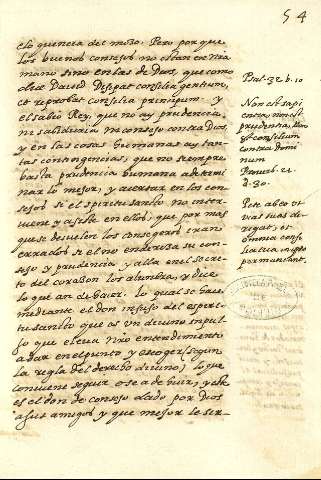 54
eloquencia del mozo. Pero por que
los buenos consejos no estan en nra
mano sino en las de Dios, que como
dice David Dissipat consilia gentium,
et reprobat consilia principum y
el sabio Rey, que no ay prudencia
ni sabiduria ni consejo contra Dios,
y en las cosas humanas ay tan
tas contingencias, que no siempre
basta prudencia humana a determi
nar lo mejor, y acertar en los con
sejos si el spiritu sancto no inter
viene y asiste en ellos, que por mas
que se desvelen los consegeros eran
errados si el no endereza su con
sejo y prudencia y alla en el secre
to del corazon los alumbra, y dice
lo que an de hazer. lo qual se haze
mediante el don infuso del espiri
tu sancto que es un divino impul
so que eleva nro entendimiento
a dar en el punto y escoger (segun
la regla del derecho divino) lo que
conviene seguir o se a de huir, y este
es el don de consejo dado por Dios
a sus amigos y que mejor le sir-
Psal. 32. b. 10
Non est sapi
encia, non est
prudentia, non
est consilium
contra Domi
num
Proverb. 21
d. 30.
Pete ab eo ut
vias tuas di
rigat, et
omnia consi
lia tua in ipso
permaneant.